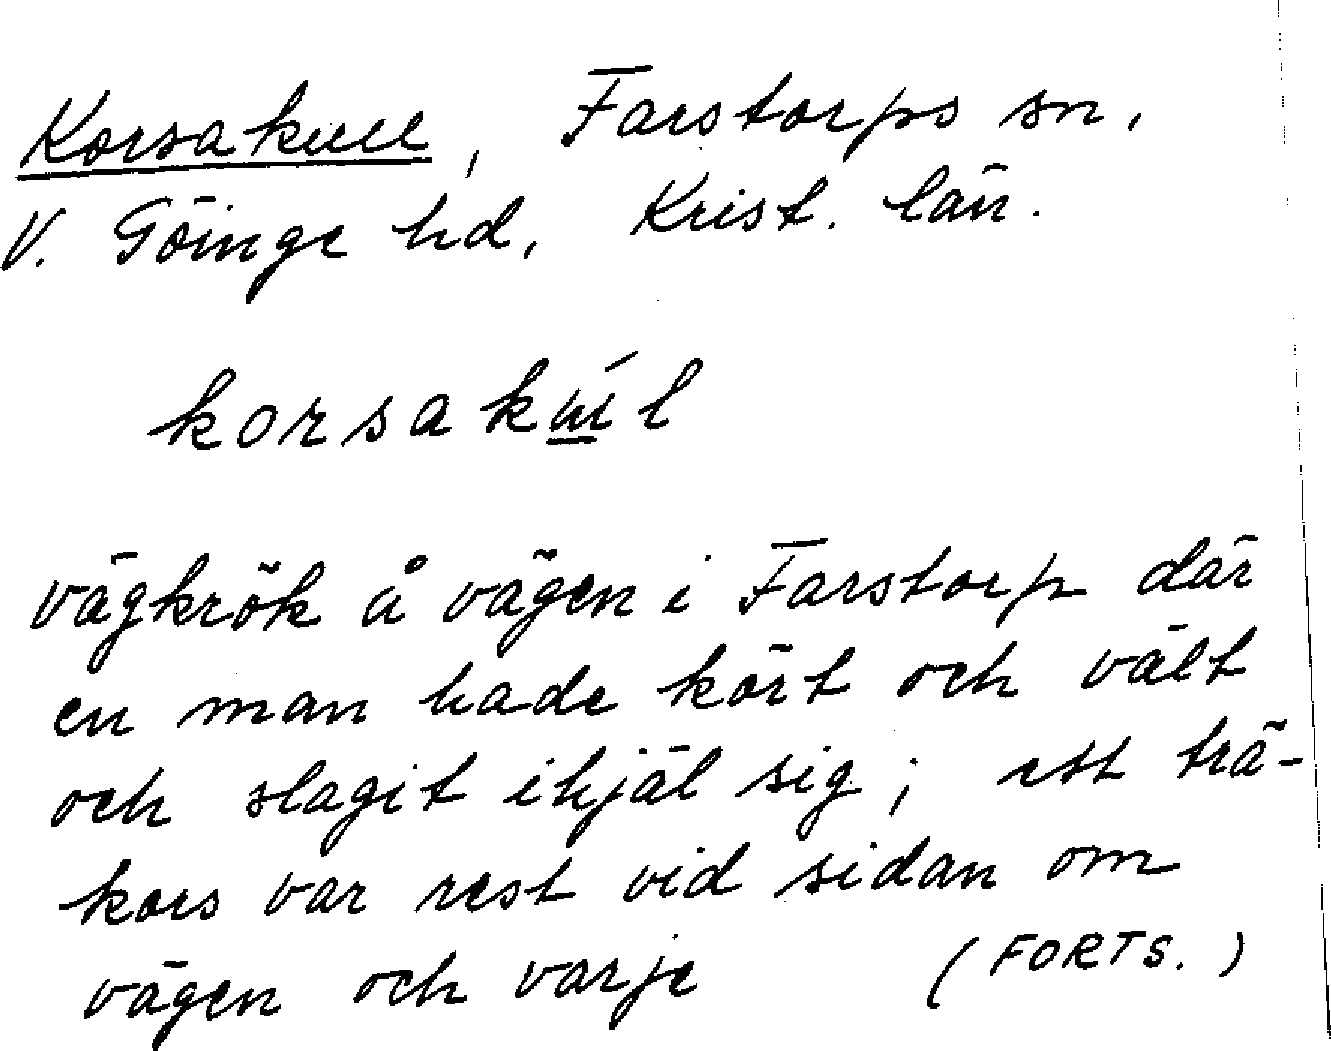 Korsakull, Farstorps sn,
V. Göinge hd, Krist. län.
korsakúl
vägkrök å vägen i Farstorp där
en man hade kört och vält
och slagit ihjäl sig; ett trä-
kors var rest vid sidan om
vägen och varje (FORTS.)